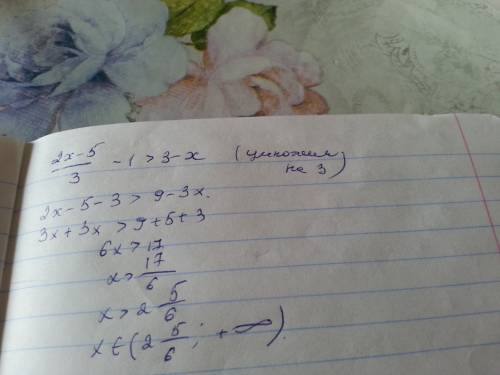 (2x-5)/3 -1 > 3-x (умножим на 3)
2x-5-3 > 9-3x.
3x+3x > 9+5+3
6x > 17
x > 17/6
x > 2 5/6
x ∈ (2 5/6; +∞).